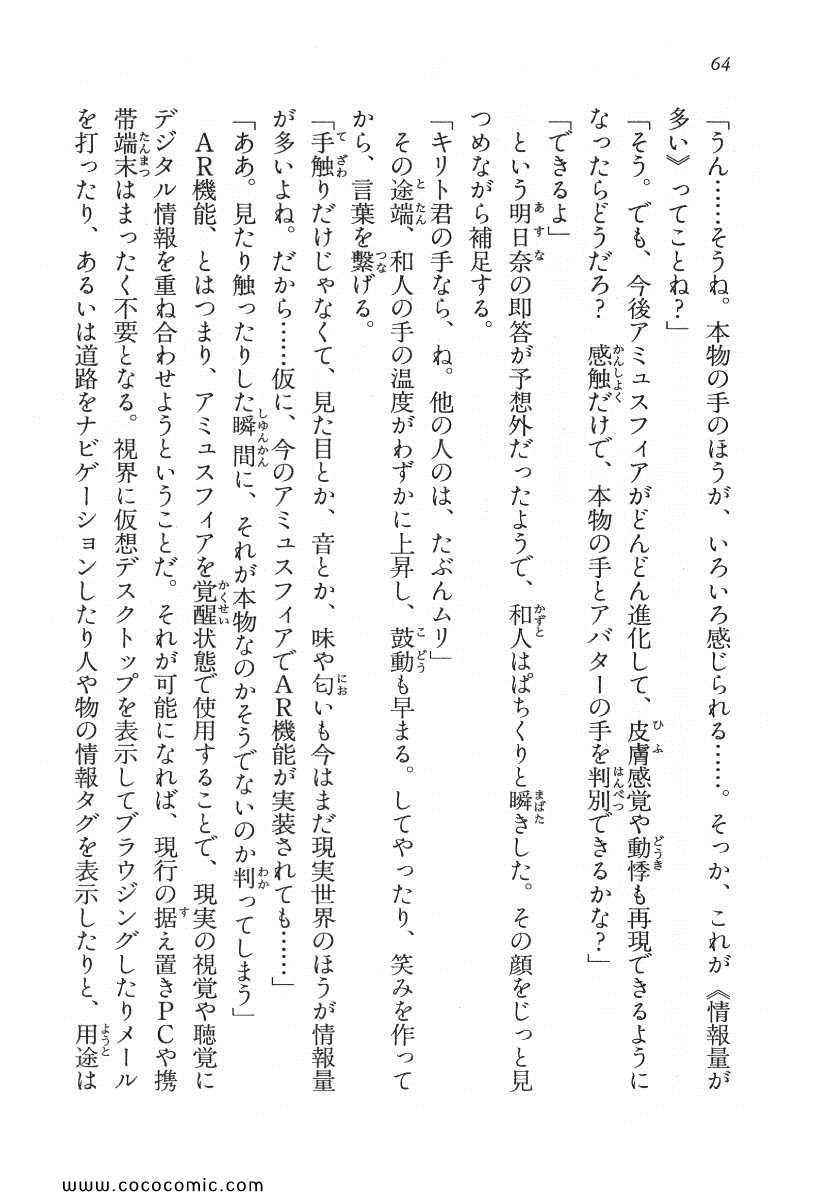 64
「うん……そうね。本物の手のほうが、いろいろ感じられる……。そっか、これが《情報量が
多い》ってことね？」
「そう。でも、今後アミュスフィアがどんどん進化して、皮膚感覚や動悸も再現できるように
なったらどうだろ？　感触だけで、本物の手とアバターの手を判別できるかな？」
「できるよ」
という明日奈の即答が予想外だったようで、和人はぱちくりと瞬きした。その顔をじっと見
つめながら補足する。
「キリト君の手なら、ね。他の人のは、たぶんムリ」
その途端、和人の手の温度がわずかに上昇し、鼓動も早まる。してやったり、笑みを作って
から、言葉を繋げる。
「手触りだけじゃなくて、見た目とか、音とか、味や匂いも今はまだ現実世界のほうが情報量
が多いよね。だから……仮に、今のアミュスフィアでＡＲ機能が実装されても……」
「ああ。見たり触ったりした瞬間に、それが本物なのかそうでないのか判ってしまう」
ＡＲ機能、とはつまり、アミュスフィアを覚醒状態で使用することで、現実の視覚や聴覚に
デジタル情報を重ね合わせようということだ。それが可能になれば、現行の据え置きＰＣや携
帯端末はまったく不要となる。視界に仮想デスクトップを表示してブラウジングしたりメール
を打ったり、あるいは道路をナビゲーションしたり人や物の情報タグを表示したりと、用途は
www.cococomic.com